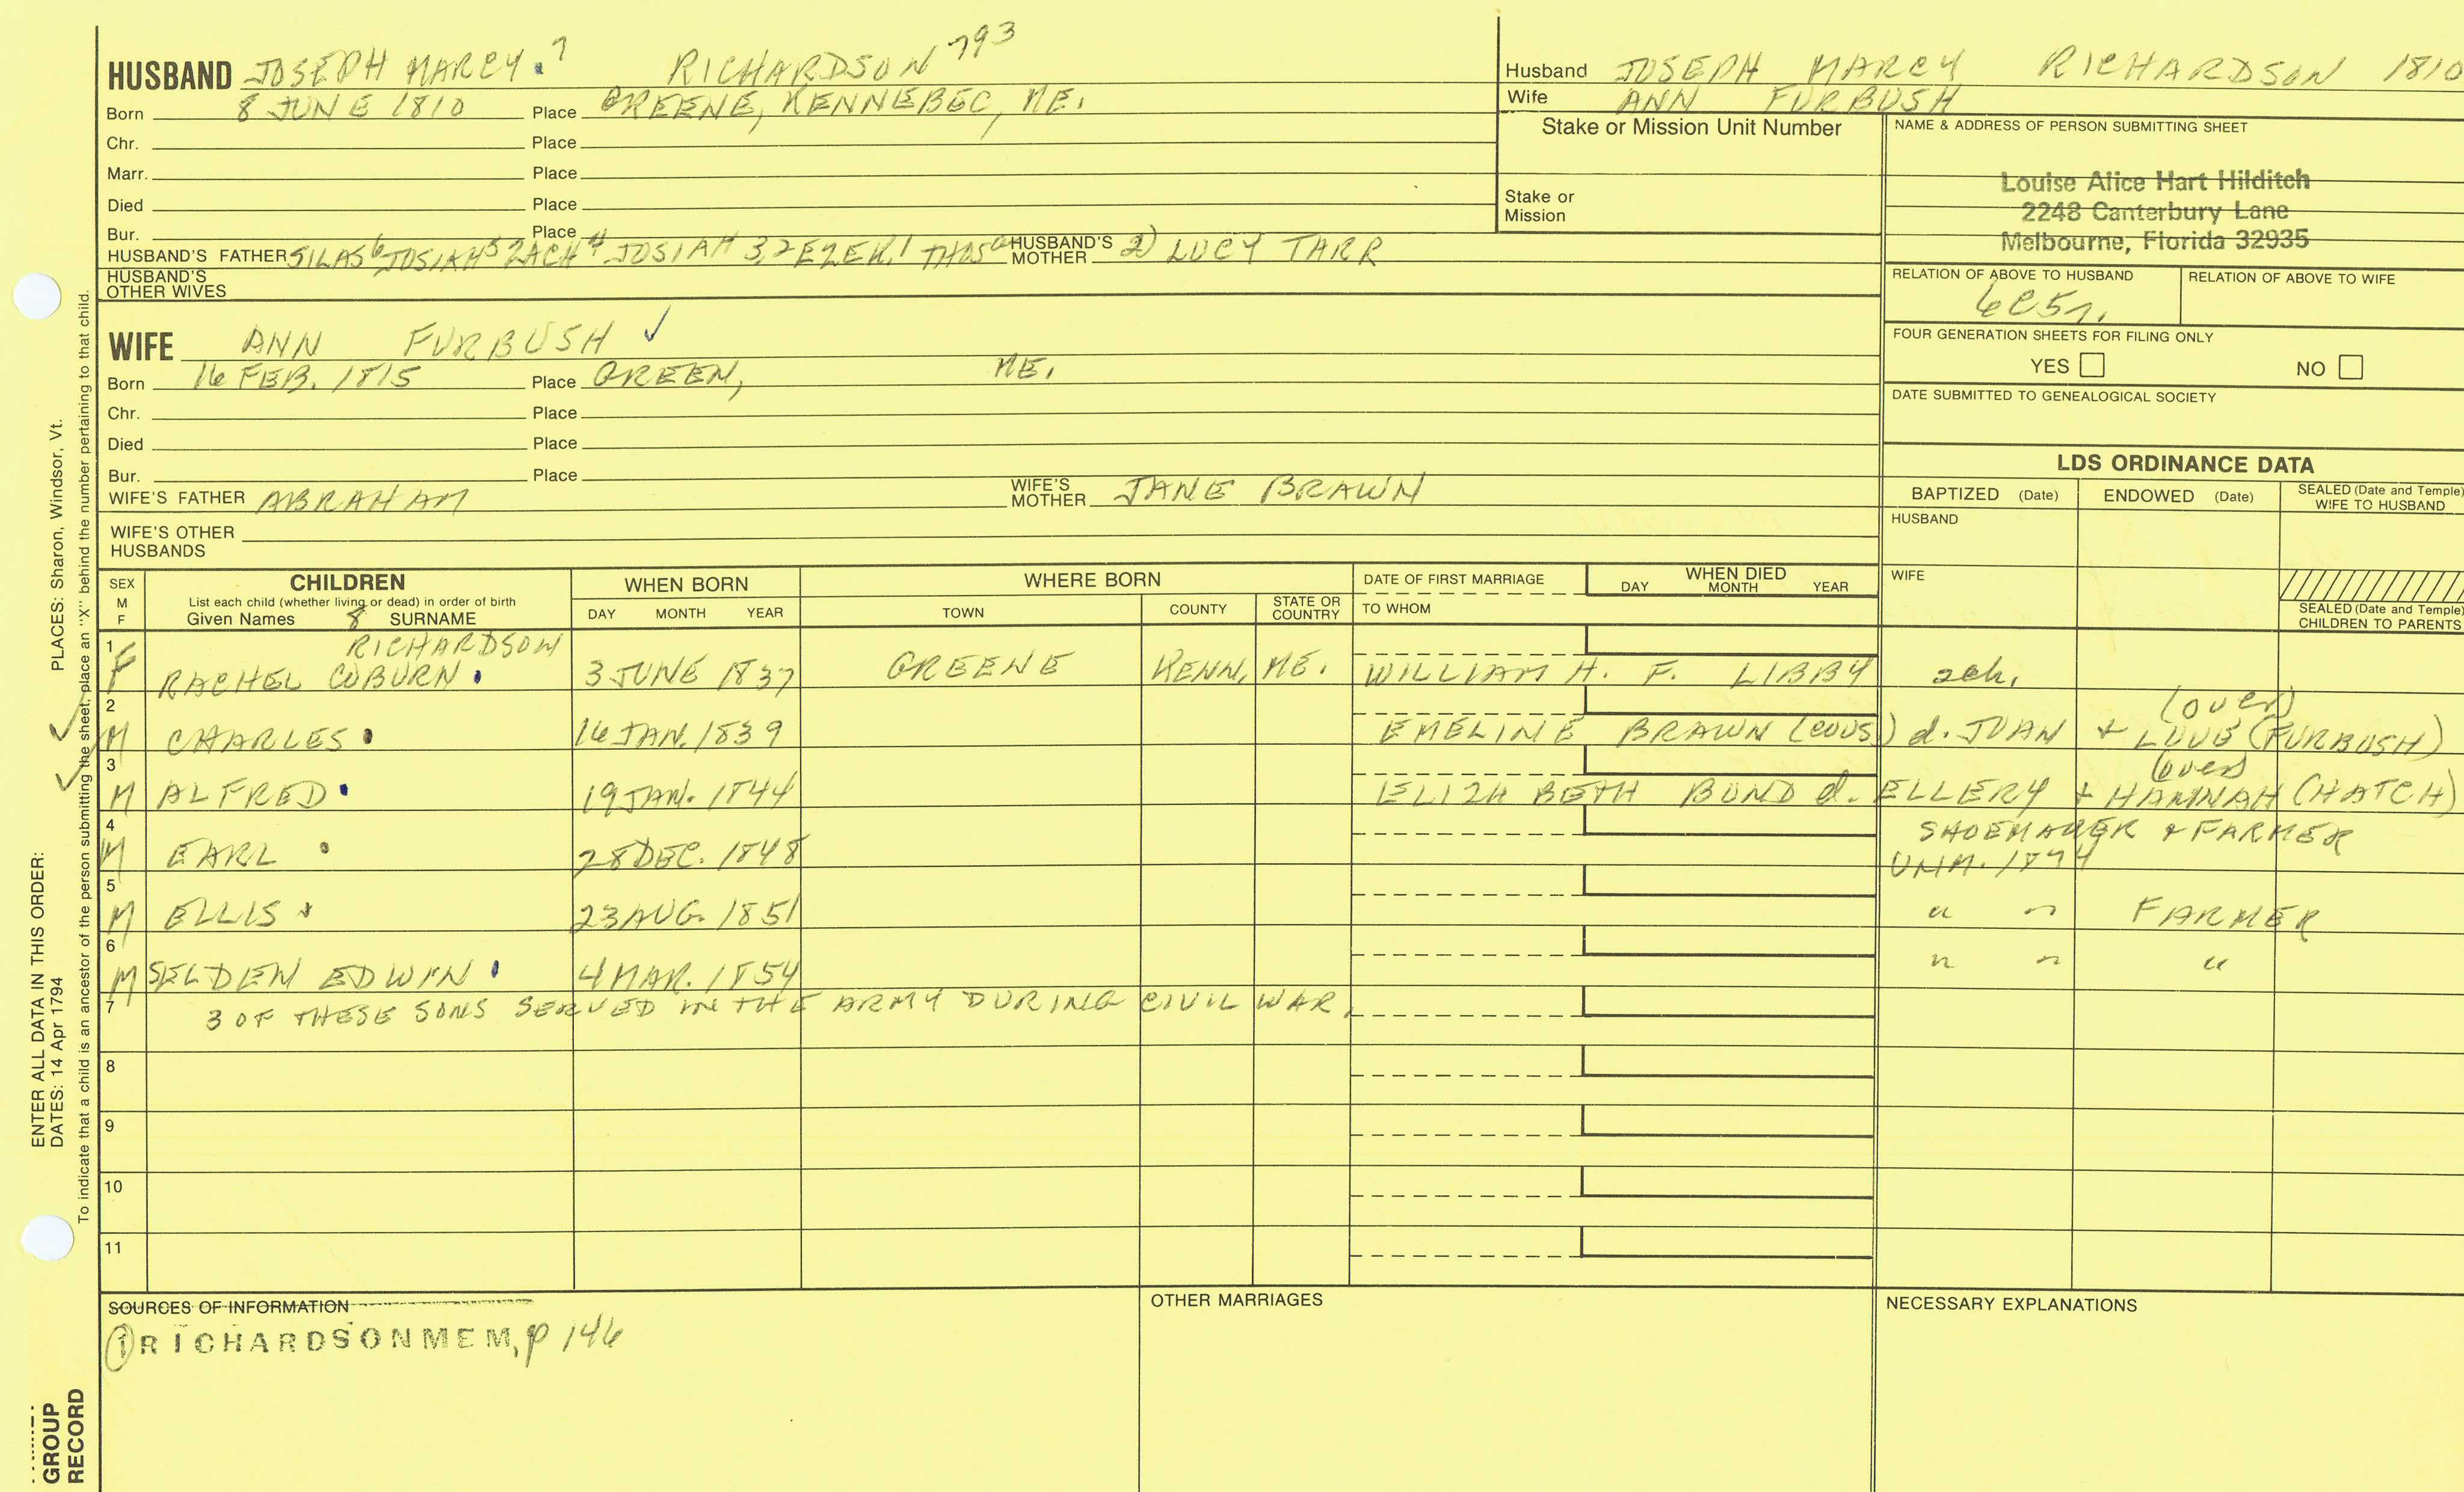 HUSBAND JOSEPH MARCY. 7 RICHARDSON 793
Born 8 JUNE 1810 Place GREENE, KENNEBEC, ME.
Chr. Place
Marr. Place
Died Place
Bur. Place
HUSBAND'S FATHER SILAS 6 JOSIAH 5 ZACH 4 JOSIAH 3, 2 EZEK. 1 THOS a HUSBAND'S MOTHER 2) LUCY TARR
HUSBAND'S OTHER WIVES
Husband JOSEPH MARCY RICHARDSON 1810
Wife ANN FURBUSH
Stake or Mission Unit Number
Stake or Mission
NAME & ADDRESS OF PERSON SUBMITTING SHEET
Louise Alice Hart Hilditch
2248 Canterbury Lane
Melbourne, Florida 32935
RELATION OF ABOVE TO HUSBAND RELATION OF ABOVE TO WIFE
6C5r.
FOUR GENERATION SHEETS FOR FILING ONLY
YES NO
DATE SUBMITTED TO GENEALOGICAL SOCIETY
WIFE ANN FURBUSH ✓
Born 16 FEB. 1815 Place GREEN, ME.
Chr. Place
Died Place
Bur. Place
WIFE'S FATHER ABRAHAM WIFE'S MOTHER JANE BRAWN
WIFE'S OTHER HUSBANDS
LDS ORDINANCE DATA
BAPTIZED (Date) ENDOWED (Date) SEALED (Date and Temple) WIFE TO HUSBAND
HUSBAND
WIFE
SEALED (Date and Temple) CHILDREN TO PARENTS
SEX M F
CHILDREN
List each child (whether living or dead) in order of birth
Given Names 8 SURNAME
WHEN BORN
DAY MONTH YEAR
WHERE BORN
TOWN COUNTY STATE OR COUNTRY
DATE OF FIRST MARRIAGE
TO WHOM
WHEN DIED
DAY MONTH YEAR
1 RICHARDSON
F RACHEL COBURN. 3 JUNE 1837 GREENE KENN. ME. WILLIAM H. F. LIBBY 2ch.
2 (over)
M CHARLES 16 JAN. 1839 EMELINE BRAWN (COUS) d. JOHN + LOVE (FURBUSH)
3 (over)
M ALFRED 19 JAN. 1844 ELIZABETH BOND d. ELLERY + HANNAH (HATCH)
4 SHOEMAKER & FARMER
M EARL 28 DEC. 1848 UNM. 1874
5
M ELLIS 23 AUG. 1851 " " FARMER
6
M SELDEN EDWIN 4 MAR. 1854 " " "
7 3 OF THESE SONS SERVED IN THE ARMY DURING CIVIL WAR.
8
9
10
11
SOURCES OF INFORMATION
① RICHARDSONMEM, p 146
OTHER MARRIAGES
NECESSARY EXPLANATIONS
ENTER ALL DATA IN THIS ORDER:
DATES: 14 Apr 1794 PLACES: Sharon, Windsor, Vt.
To indicate that a child is an ancestor of the person submitting the sheet, place an "X" behind the number pertaining to that child.
GROUP
RECORD